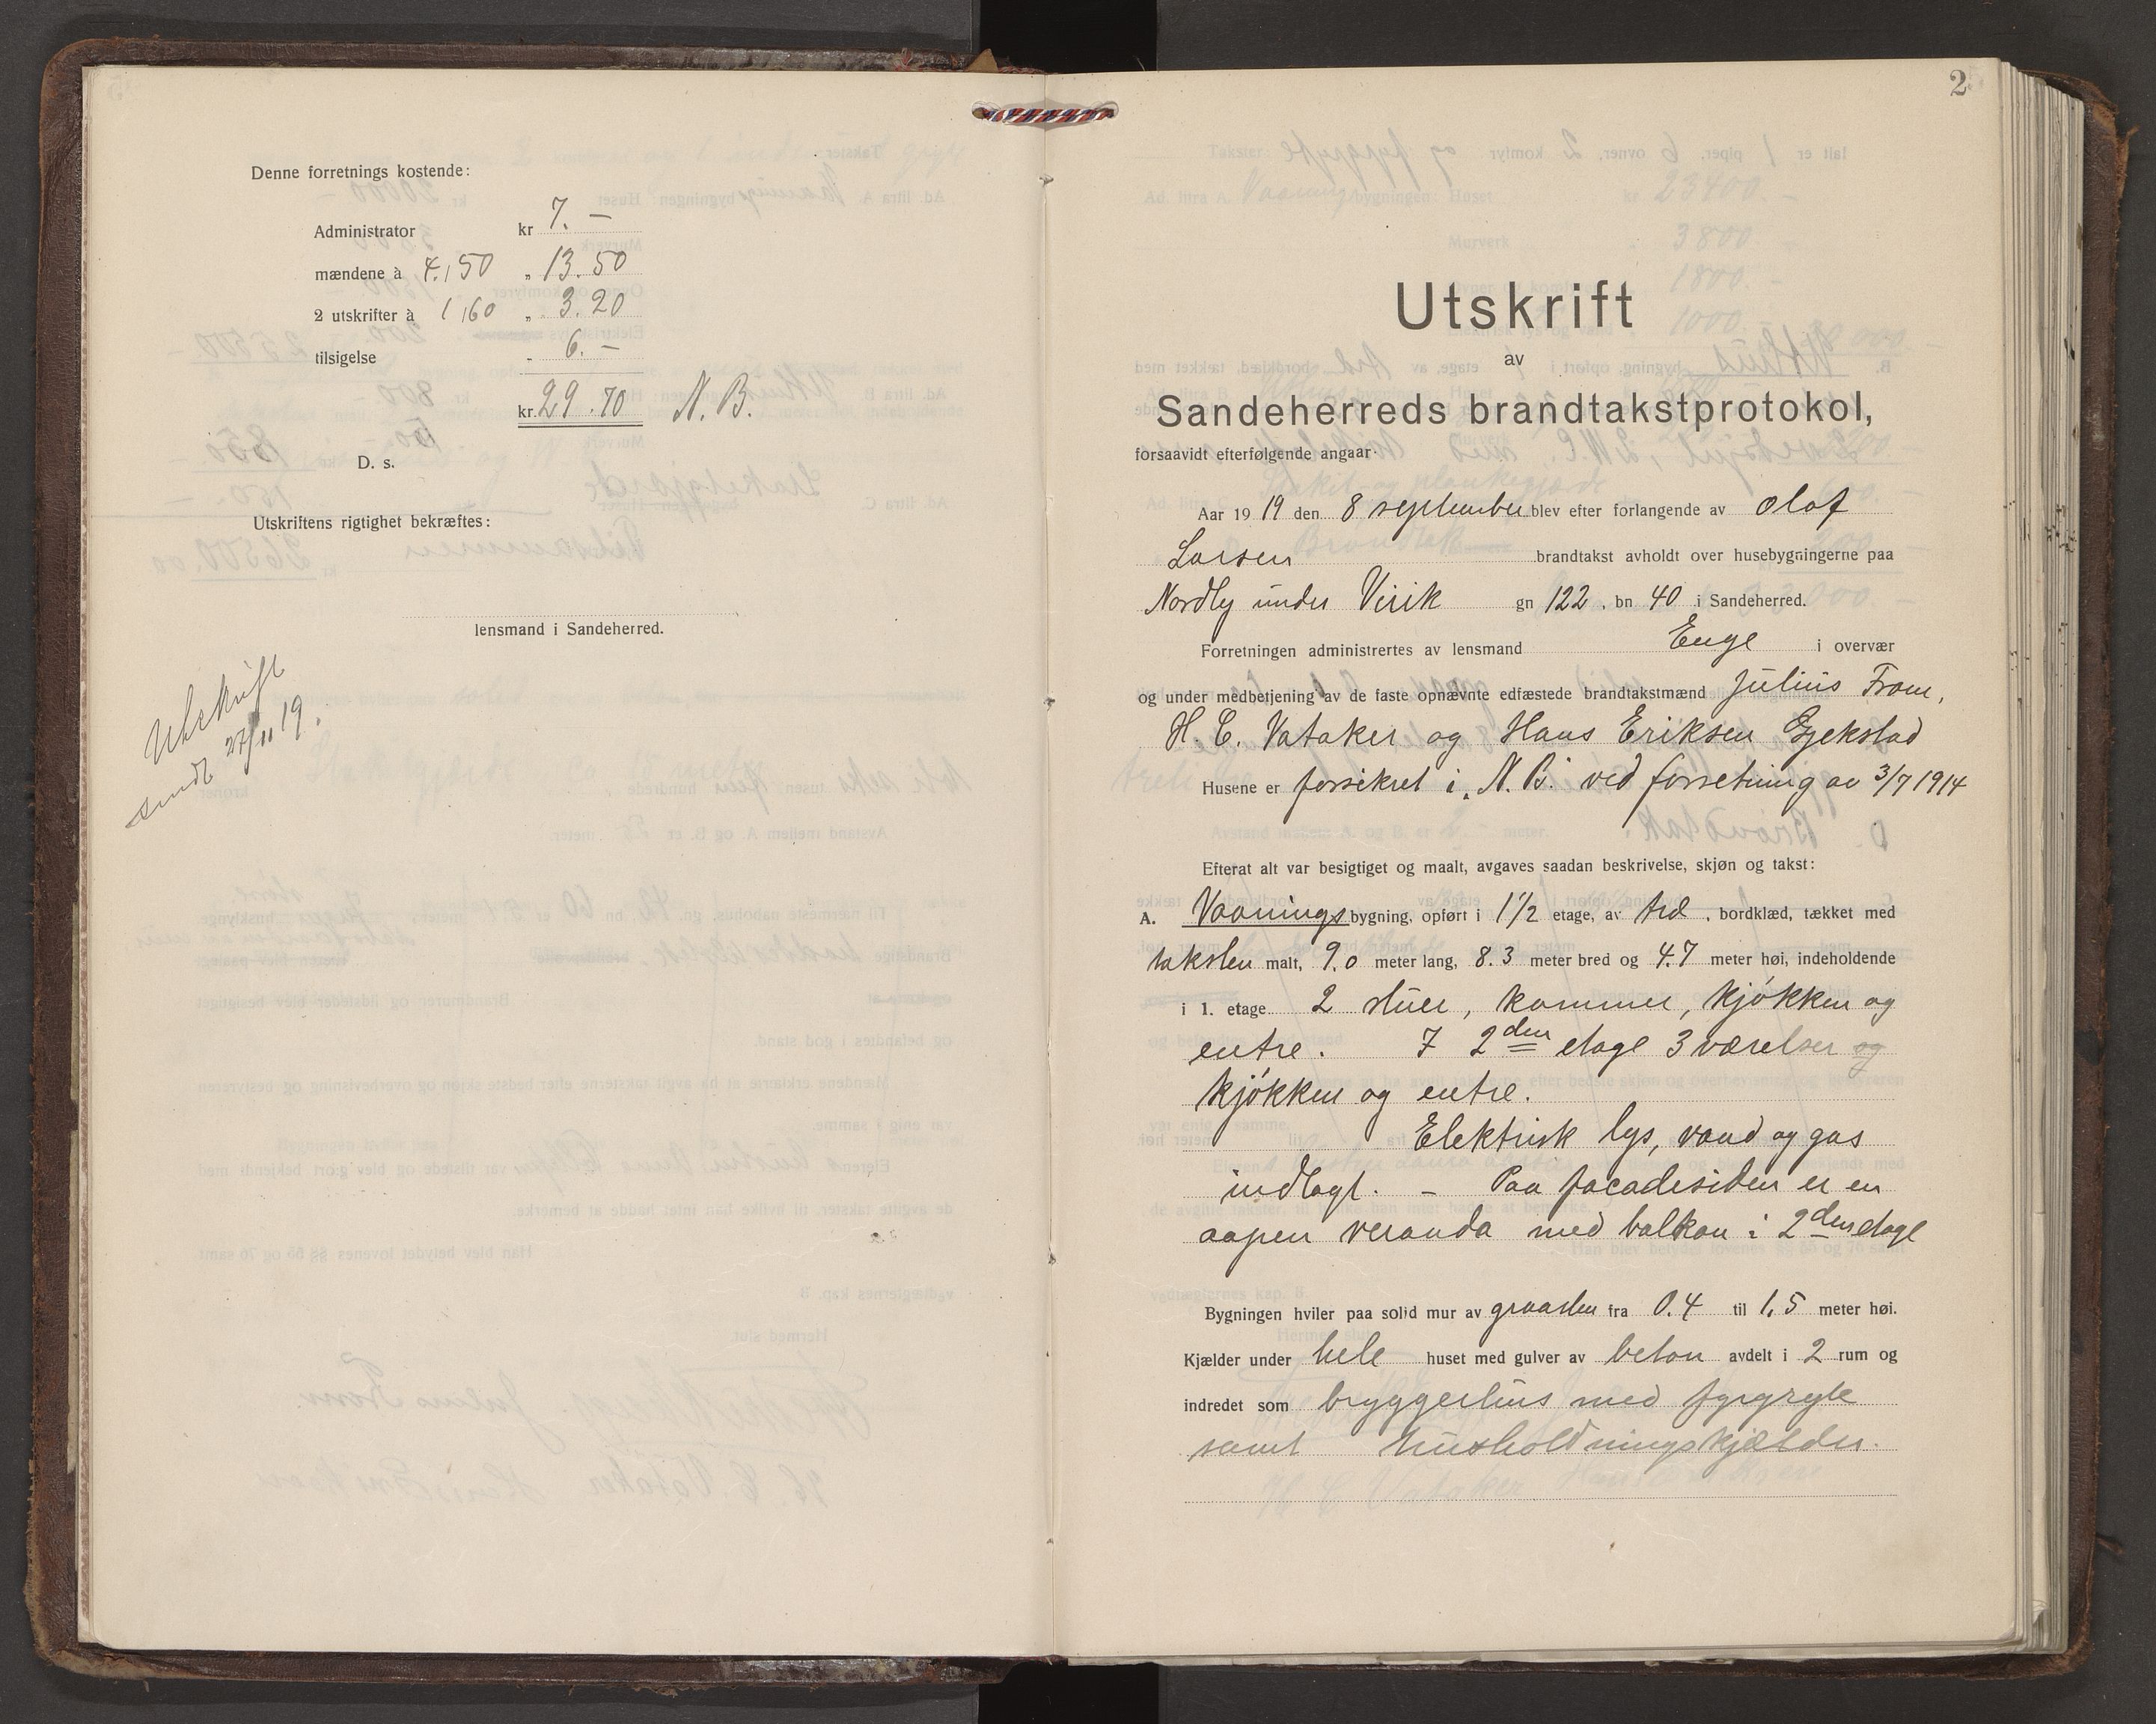 Denne forretnings kostende:
Administrator kr 7. –
mændene à 4,50 „ 13.50
2 utskrifter à 1,60 „ 3.20
tilsigelse - 6. –
kr. 29.70 N. B.
D. s.
Utskriftens rigtighet bekræftes:
lensmand i Sandeherred.
Utskrift
sendt 27/11 19.
2
Utskrift
av
Sandeherreds brandtakstprotokol,
forsaavidt efterfølgende angaar
Aar 1919 den 8 september blev efter forlangende av Olaf
Larsen brandtakst avholdt over husebygningerne paa
Nordly under Virik gn 122, bn 40 i Sandeherred.
Forretningen administrertes av lensmand Enge i overvær
og under medbetjening av de faste opnævnte edfæstede brandtakstmænd Julius From,
H. C. Vataker og Hans Eriksen Gjekstad
Husene er forsikret i N. B. ved forretning av 3/7 1914
Efterat alt var besigtiget og maalt, avgaves saadan beskrivelse, skjøn og takst:
A. Vaanings bygning, opført i 1½ etage, av træ, bordklæd, tækket med
taksten malt, 9.0 meter lang, 8.3 meter bred og 4.7 meter høi, indeholdende
i 1. etage 2 stuer, kammer, kjøkken og
entre. I 2den etage 3 værelser og
kjøkken og entre.
Elektrisk lys, vand og gas
indlagt. – Paa facadesiden er en
aapen veranda med balkon i 2den etage
Bygningen hviler paa solid mur av graasten fra 0.4 til 1,5 meter høi.
Kjælder under hele huset med gulver av beton avdelt i 2 rum og
indredet som bryggerhus med fyrgryte
samt husholdningskjælder.